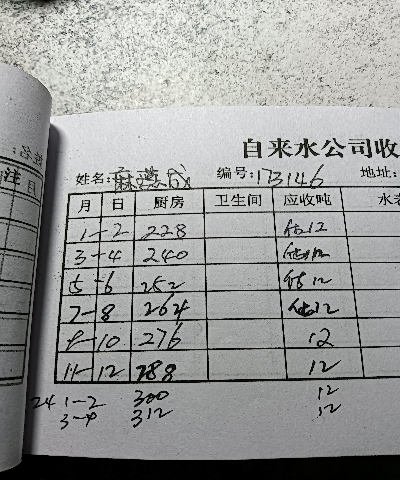 自来水公司收
姓名: 麻 成 编号: 173146 地址:
月 日 厨房 卫生间 应收吨 水表
1-2 228 估12
3-4 240 估12
5-6 252 估12
7-8 264 估12
9-10 276 12
11-12 288 12
24 1-2 300 12
3-4 312 12